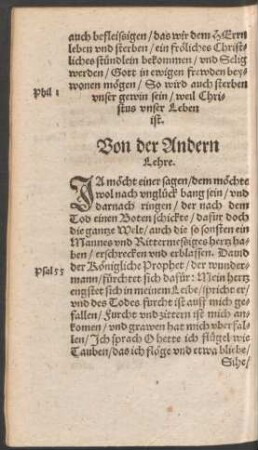 auch befleissigen / das wir dem HErrn
leben und sterben / ein fröliches Christ-
liches stündlein bekommen / und Selig
werden / Gott in ewigen frewden bey-
wonen mögen / So wird auch sterben
Phil 1
vnser gewin sein / weil Chri-
stus vnser Leben
ist.
Von der Andern
Lehre.
JA möcht einer sagen / dem möchte
wol nach vnglück bang sein / vnd
darnach ringen / der nach dem
Tod einen Boten schickte / dafür doch
die gantze Welt / auch die so sonsten ein
Mannes vnd Rittermessiges hertz ha-
ben / erschrecken vnd erblassen. David
der Königliche Prophet / der wunder-
Psal 55
mann / fürchtet sich dafür: Mein hertz
engstet sich in meinem Leibe / spricht er /
vnd des Todes furcht ist auff mich ge-
fallen / Furcht vnd zittern ist mich an-
komen / vnd grawen hat mich vberfal-
len / Ich sprach O hette ich flügel wie
Tauben / das ich flöge vnd etwa bliebe /
Sihe /